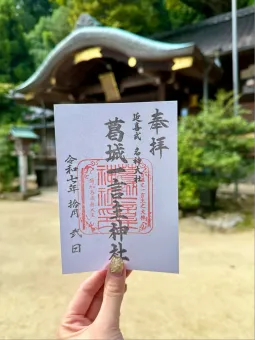 奉拝
延喜式名神大社
葛城一言主神社
令和七年 拾月 弐日